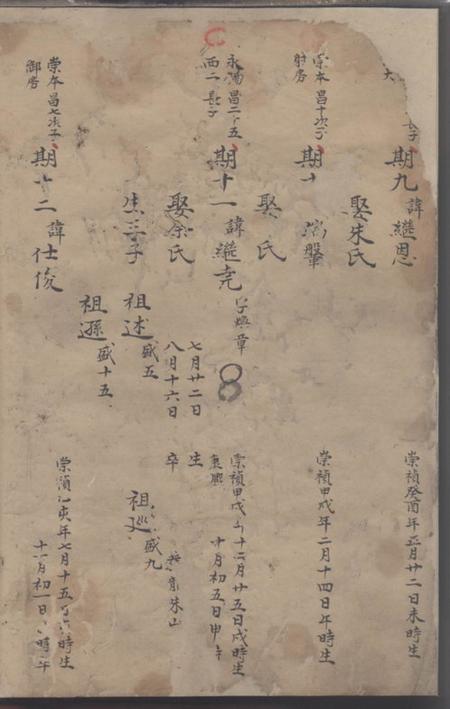 期九 諱繼恩
崇禎癸酉年正月廿二日未時生
娶朱氏
崇本 昌十次子
期十
崇禎甲戌年二月十四日午時生
娶 氏
永陽 昌二十五
西二 長子
期十一 諱繼堯 字煥章
崇禎甲戌年十二月廿五日戌時生
康熙 十月初五日申
娶余氏
七月廿二日 生
八月十六日 卒
生三子 祖述 盛五
祖巡 盛九
祖遜 盛十五
崇本 昌七次子
御房
期十二 諱仕俊
崇禎乙亥年七月十五日 時生
十一月初一日 時